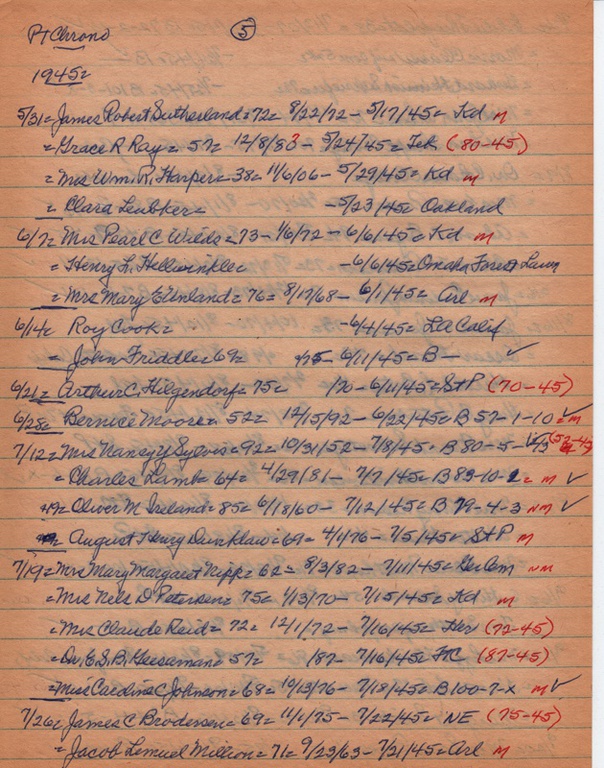 Pt Chrono (5)
1945=
5/31= James Robert Sutherland= 72= 8/22/72 – 5/17/45= Kd M
= Grace R Ray = 57= 12/8/8 – 5/24/45= Tek (80-45)
= Mrs Wm. R. Harper= 38= 11/6/06 – 5/29/45= Kd M
= Clara Leubker= – 5/23/45= Oakland
6/7= Mrs Pearl C Wilds= 73 – 1/6/72 – 6/6/45= Kd M
= Henry L. Hellwinkle= – 6/6/45= Omaha Forest Lawn
= Mrs Mary E Unland= 76= 8/17/68 – 6/1/45= Arl M
6/14= Roy Cook= – 6/4/45= LA Calif
= John Friddle= 69= /75 – 6/11/45= B – ✓
6/21= Arthur C. Hilgendorf= 75= /70 – 6/11/45= St P (70-45)
6/28= Bernice Moore= 52= 12/15/92 – 6/22/45= B 57-1-10 ✓ = M
7/12= Mrs Nancy Y Sylvis= 92= 10/31/52 – 7/8/45= B 80-5- ✓ (52-45)
= Charles Lamb= 64= 4/29/81 – 7/7/45= B 83-10-2 = M ✓
= Oliver M. Ireland= 85= 6/18/60 – 7/12/45= B 79-4-3 NM ✓
= August Henry Dunklau= 69= 4/1/76 – 7/5/45= St P M
7/19= Mrs Mary Margaret Nipp= 62= 8/3/82 – 7/11/45= Ger Cem NM
= Mrs Nels D Petersen= 75= 1/13/70 – 7/15/45= Kd M
= Mrs Claude Reid= 72= 12/1/72 – 7/16/45= Her (72-45)
= Dr. E.S.B. Geesaman= 57= /87 – 7/16/45= FC (87-45)
= Miss Caroline C Johnson= 68= 10/13/76 – 7/18/45= B 100-7-X M ✓
7/26= James C Brodersen= 69= 11/1/75 – 7/22/45= NE (75-45)
= Jacob Lemuel Million= 71= 9/23/63 – 7/21/45= Arl M